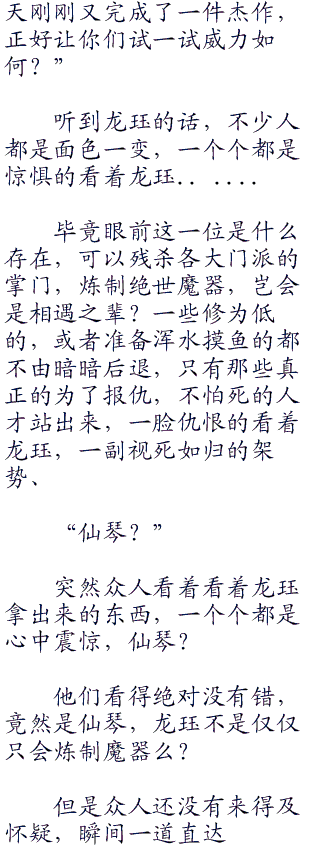 天刚刚又完成了一件杰作，
正好让你们试一试威力如
何？”
听到龙珏的话，不少人
都是面色一变，一个个都是
惊惧的看着龙珏．．．．．．
毕竟眼前这一位是什么
存在，可以残杀各大门派的
掌门，炼制绝世魔器，岂会
是相遇之辈？一些修为低
的，或者准备浑水摸鱼的都
不由暗暗后退，只有那些真
正的为了报仇，不怕死的人
才站出来，一脸仇恨的看着
龙珏，一副视死如归的架
势、
“仙琴？”
突然众人看着看着龙珏
拿出来的东西，一个个都是
心中震惊，仙琴？
他们看得绝对没有错，
竟然是仙琴，龙珏不是仅仅
只会炼制魔器么？
但是众人还没有来得及
怀疑，瞬间一道直达